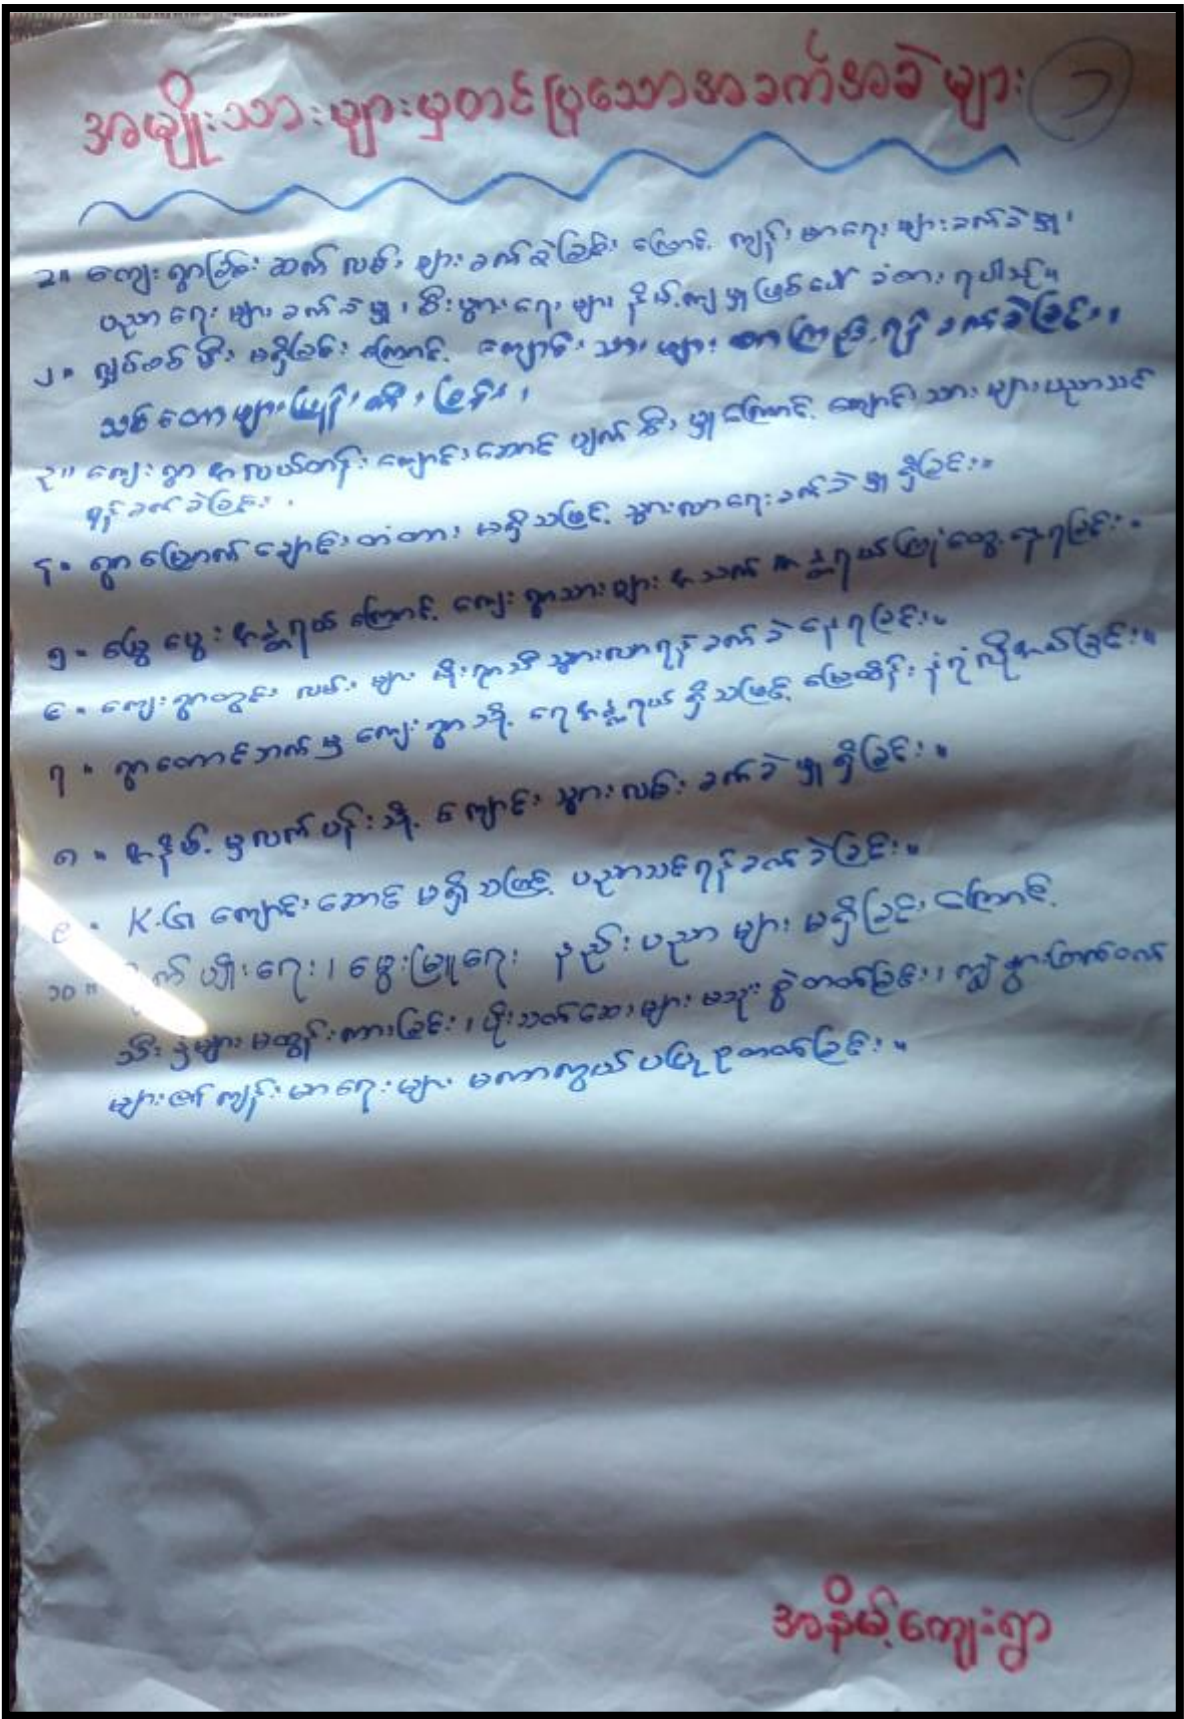 အမျိုးသားများမှတင်ပြသောအခက်အခဲများ ၁
၁။ ကျေးရွာခြင်းဆက်လမ်းများခက်ခဲခြင်းကြောင့် ကျန်းမာရေးများခက်ခဲမှု၊
ပညာရေးများခက်ခဲမှု၊ စီးပွားရေးများနိမ့်ကျမှုဖြစ်ပေါ် ခံစားရပါသည်။
၂။ လျှပ်စစ်မီးမရှိခြင်းကြောင့် ကျောင်းသားများစာကြည့်ရန်ခက်ခဲခြင်း၊
သစ်တောများပြုန်းတီးခြင်း၊
၃။ ကျေးရွာအလယ်တန်းကျောင်းဆောင်ပျက်စီးမှုကြောင့် ကျောင်းသားများပညာသင်
ရန်ခက်ခဲခြင်း၊
၄။ ရွာမြောက်ချောင်းတံတားမရှိသဖြင့် သွားလာရေးခက်ခဲမှုရှိခြင်း။
၅။ မြွေပွေးအန္တရာယ်ကြောင့် ကျေးရွာသားများအသက်အန္တရာယ်ကြုံတွေ့နေရခြင်း။
၆။ ကျေးရွာတွင်းလမ်းများမိုးရာသီသွားလာရန်ခက်ခဲနေရခြင်း။
၇။ ရွာတောင်ဘက်မှ ကျေးရွာသို့ ရေအန္တရာယ်ရှိသဖြင့် မြေထိန်းနံရံလိုအပ်ခြင်း။
၈။ အနိမ့်မှလက်ပန်းသို့ ကျောင်းသွားလမ်းခက်ခဲမှုရှိခြင်း။
၉။ K.G ကျောင်းဆောင်မရှိသဖြင့် ပညာသင်ရန်ခက်ခဲခြင်း။
၁၀။ စိုက်ပျိုးရေး၊ မွေးမြူရေး နည်းပညာများမရှိခြင်းကြောင့်
သီးနှံများမထွန်းကားခြင်း၊ ပိုးသတ်ဆေးများမသုံးစွဲတတ်ခြင်း၊ ကျွဲနွားတိရစ္ဆာန်
များ၏ကျန်းမာရေးများ မကာကွယ်မပြုစုတတ်ခြင်း။
အနိမ့်ကျေးရွာ